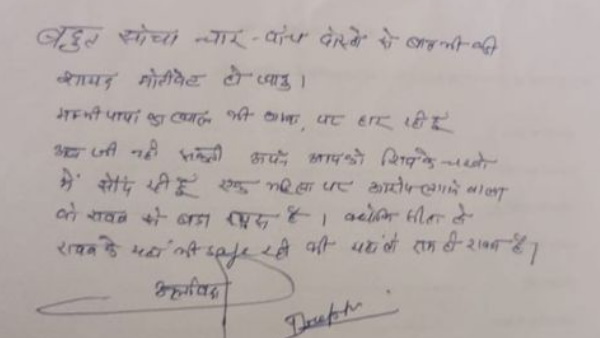 बहुत सोचा चार-पांच दोस्तो से बात भी की
शायद मोटीवेट हो जाऊ।
मम्मी पापा का ख्याल भी आया, पर हार रही हूँ
अब जी नही सकती अपने आपको शिव के चरणो
में सौंप रही हूँ एक महिला पर आरोप लगाने वाला
तो रावण से बडा है। क्योकि सीता तो
रावण के यहां भी safe रही थी यहां तो राम ही रावण है।
अलविदा